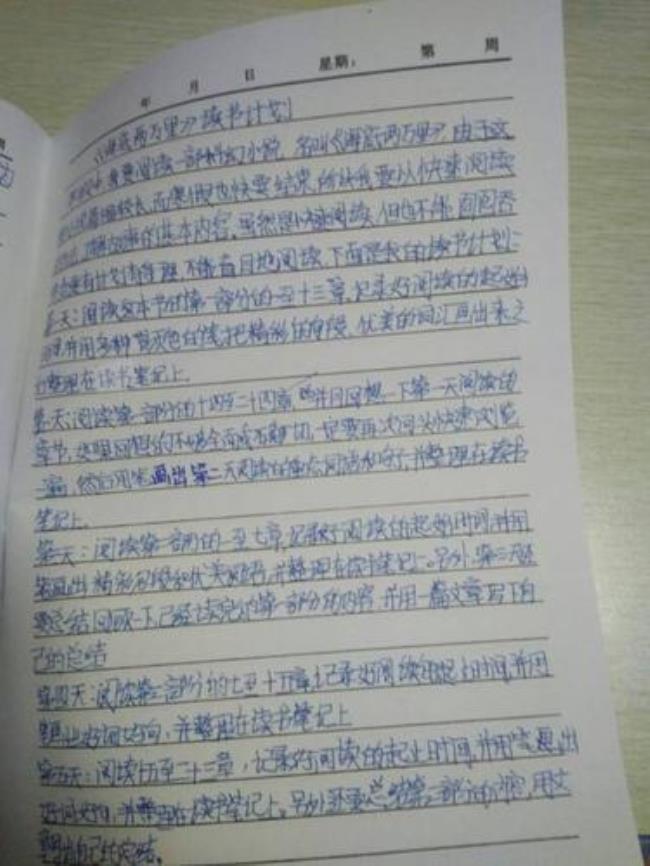 年 月 日 星期： 第 周
《海底两万里》读书计划
我要阅读一部科幻小说，名叫《海底两万里》，由于这
较长，而寒假也快要结束，所以我要从快速阅读
的基本内容，虽然是快速阅读，但也不能
要有计划 不能盲目地阅读，下面是我的读书计划：
第一天：阅读这本书的第一部分的一至十三章，记录好阅读的起始
并用多种颜色的 把精彩的片段、优美的词汇画出来之
整理在读书笔记上。
第二天：阅读第一部分的十四至二十四章，并且回想一下第一天阅读的
章节，如果回想的不够全面或不 一定要再次回头快速浏览
一遍，然后用笔画出第二天阅读的 词语和句子，并整理在读书
笔记上。
第三天：阅读第二部分的一至七章，记录好阅读的起始时间，并用
笔画出精彩片段和优美 并整理在读书笔记上。另外，第三天还
要总结回顾一下已经读完的第一部分的内容，并用一篇文章写下自
己的总结
第四天：阅读第二部分的七至十五章，记录好阅读的起 时间，并用
好词好句，并整理在读书笔记上
第五天：阅读十五至二十三章，记录好阅读的起止时间，并用笔 出
好词好句，并整理在读书笔记上。另外还要总结第二部分的内容，用文
自己的完结。